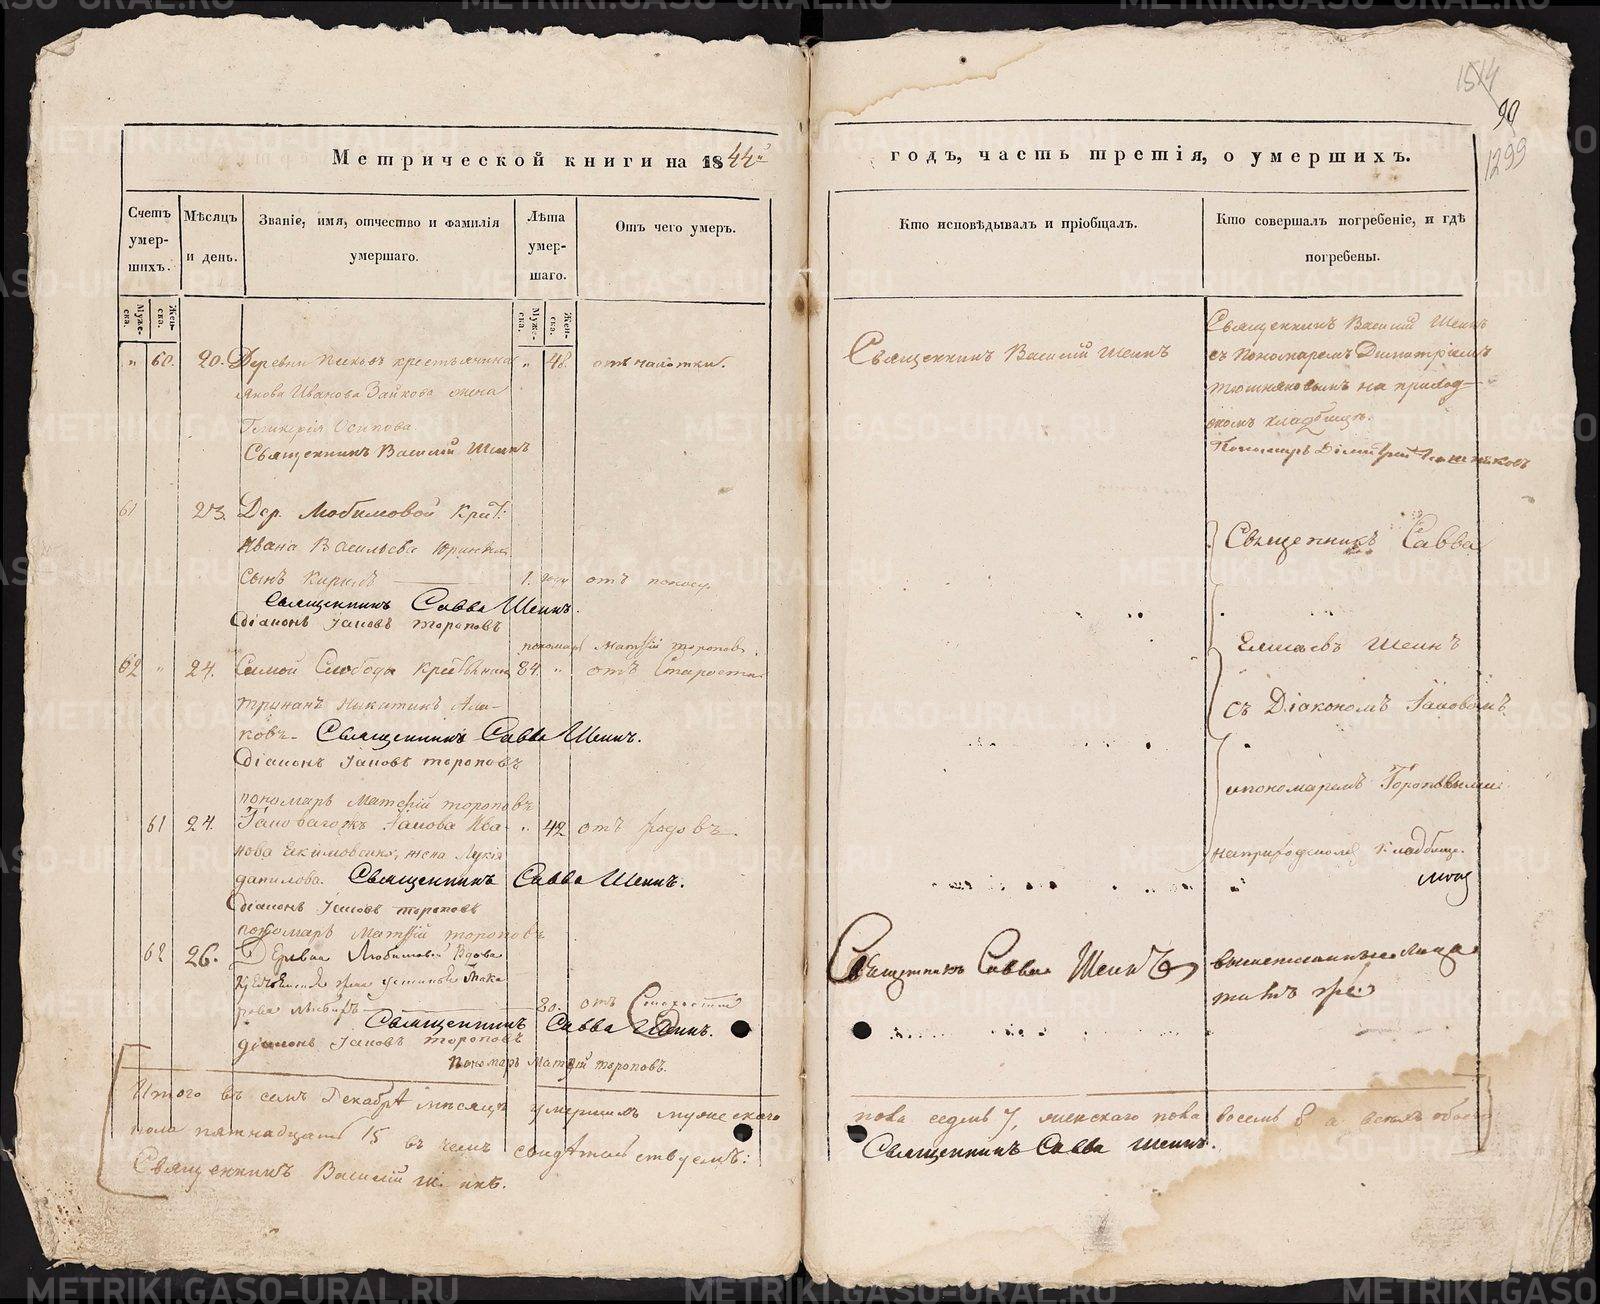 1514
90
1299
Метрической книги на 1844й
годъ, часть третія, о умершихъ.
Счетъ умер-шихъ.
Мѣсяцъ и день.
Званіе, имя, отчество и фамилія умершаго.
Лѣта умер-шаго.
Отъ чего умеръ.
Кто исповѣдывалъ и пріобщалъ.
Кто совершалъ погребеніе, и гдѣ погребены.
Муже-ска.
Жен-ска.
Муже-ска.
Жен-ска.
" 60. 20. Деревни крестьянина " 48. отъ чахотки.
Якова Иванова Зайкова жена
Гликерія Осипова.
Священникъ Василій Шеинъ
Священникъ Василій Шеинъ
Священникъ Василій Шеинъ
съ Пономаремъ Димитріемъ
Тюшняковымъ на приход-
скомъ кладбищѣ.
Пономарь Димитрій Тюшняковъ
61 23. Дер. Любимовой Крест:
Ивана Васильева
сынъ Кирилъ 1. отъ поносу
Священникъ Савва Шеинъ.
Діаконъ Іаковъ Тороповъ
пономарь Матѳій Тороповъ.
62 " 24. Самой Слободы 84. " отъ Старости
Никитинъ
ковъ. Священникъ Савва Шеинъ.
Діаконъ Іаковъ Тороповъ
пономарь Матѳій Тороповъ
61 24. Іакова Ива- " 42 отъ родовъ.
нова жена Лукія
данилова. Священникъ Савва Шеинъ.
Діаконъ Іаковъ Тороповъ
пономарь Матѳій Тороповъ
62 26. Любимовой Вдова
80. отъ Старости
Священникъ Савва Шеинъ.
Діаконъ Іаковъ Тороповъ
Пономарь Матѳій Тороповъ.
Священникъ Савва
Елисѣевъ Шеинъ
съ Діакономъ Іаковомъ
и пономаремъ Тороповыми
на приходскомъ кладбище.
Священникъ Савва Шеинъ
вышеписанные лица
тѣ же
Итого въ семъ Декабрѣ мѣсяцѣ умершихъ мужескаго
пола седмь 7, женскаго пола восемь 8 а всѣхъ обоего
пола пятнадцать 15 въ чемъ свидѣтельствуемъ:
Священникъ Савва Шеинъ.
Священникъ Василій Шеинъ.
METRIKI.GASO-URAL.RU